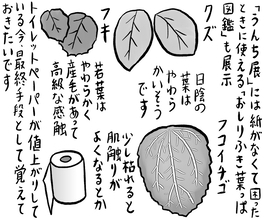 「うんち展」には紙がなくて困った
ときに使える「おしりふき葉っぱ
図鑑」も展示
クズ
日陰の
葉は
やわら
かいそう
です
フキ
若葉は
やわらかく
産毛があって
高級な感触
フユイチゴ
少し枯れると
肌触りが
よくなるとか
トイレットペーパーが値上がりして
いる今、最終手段として覚えて
おきたいです